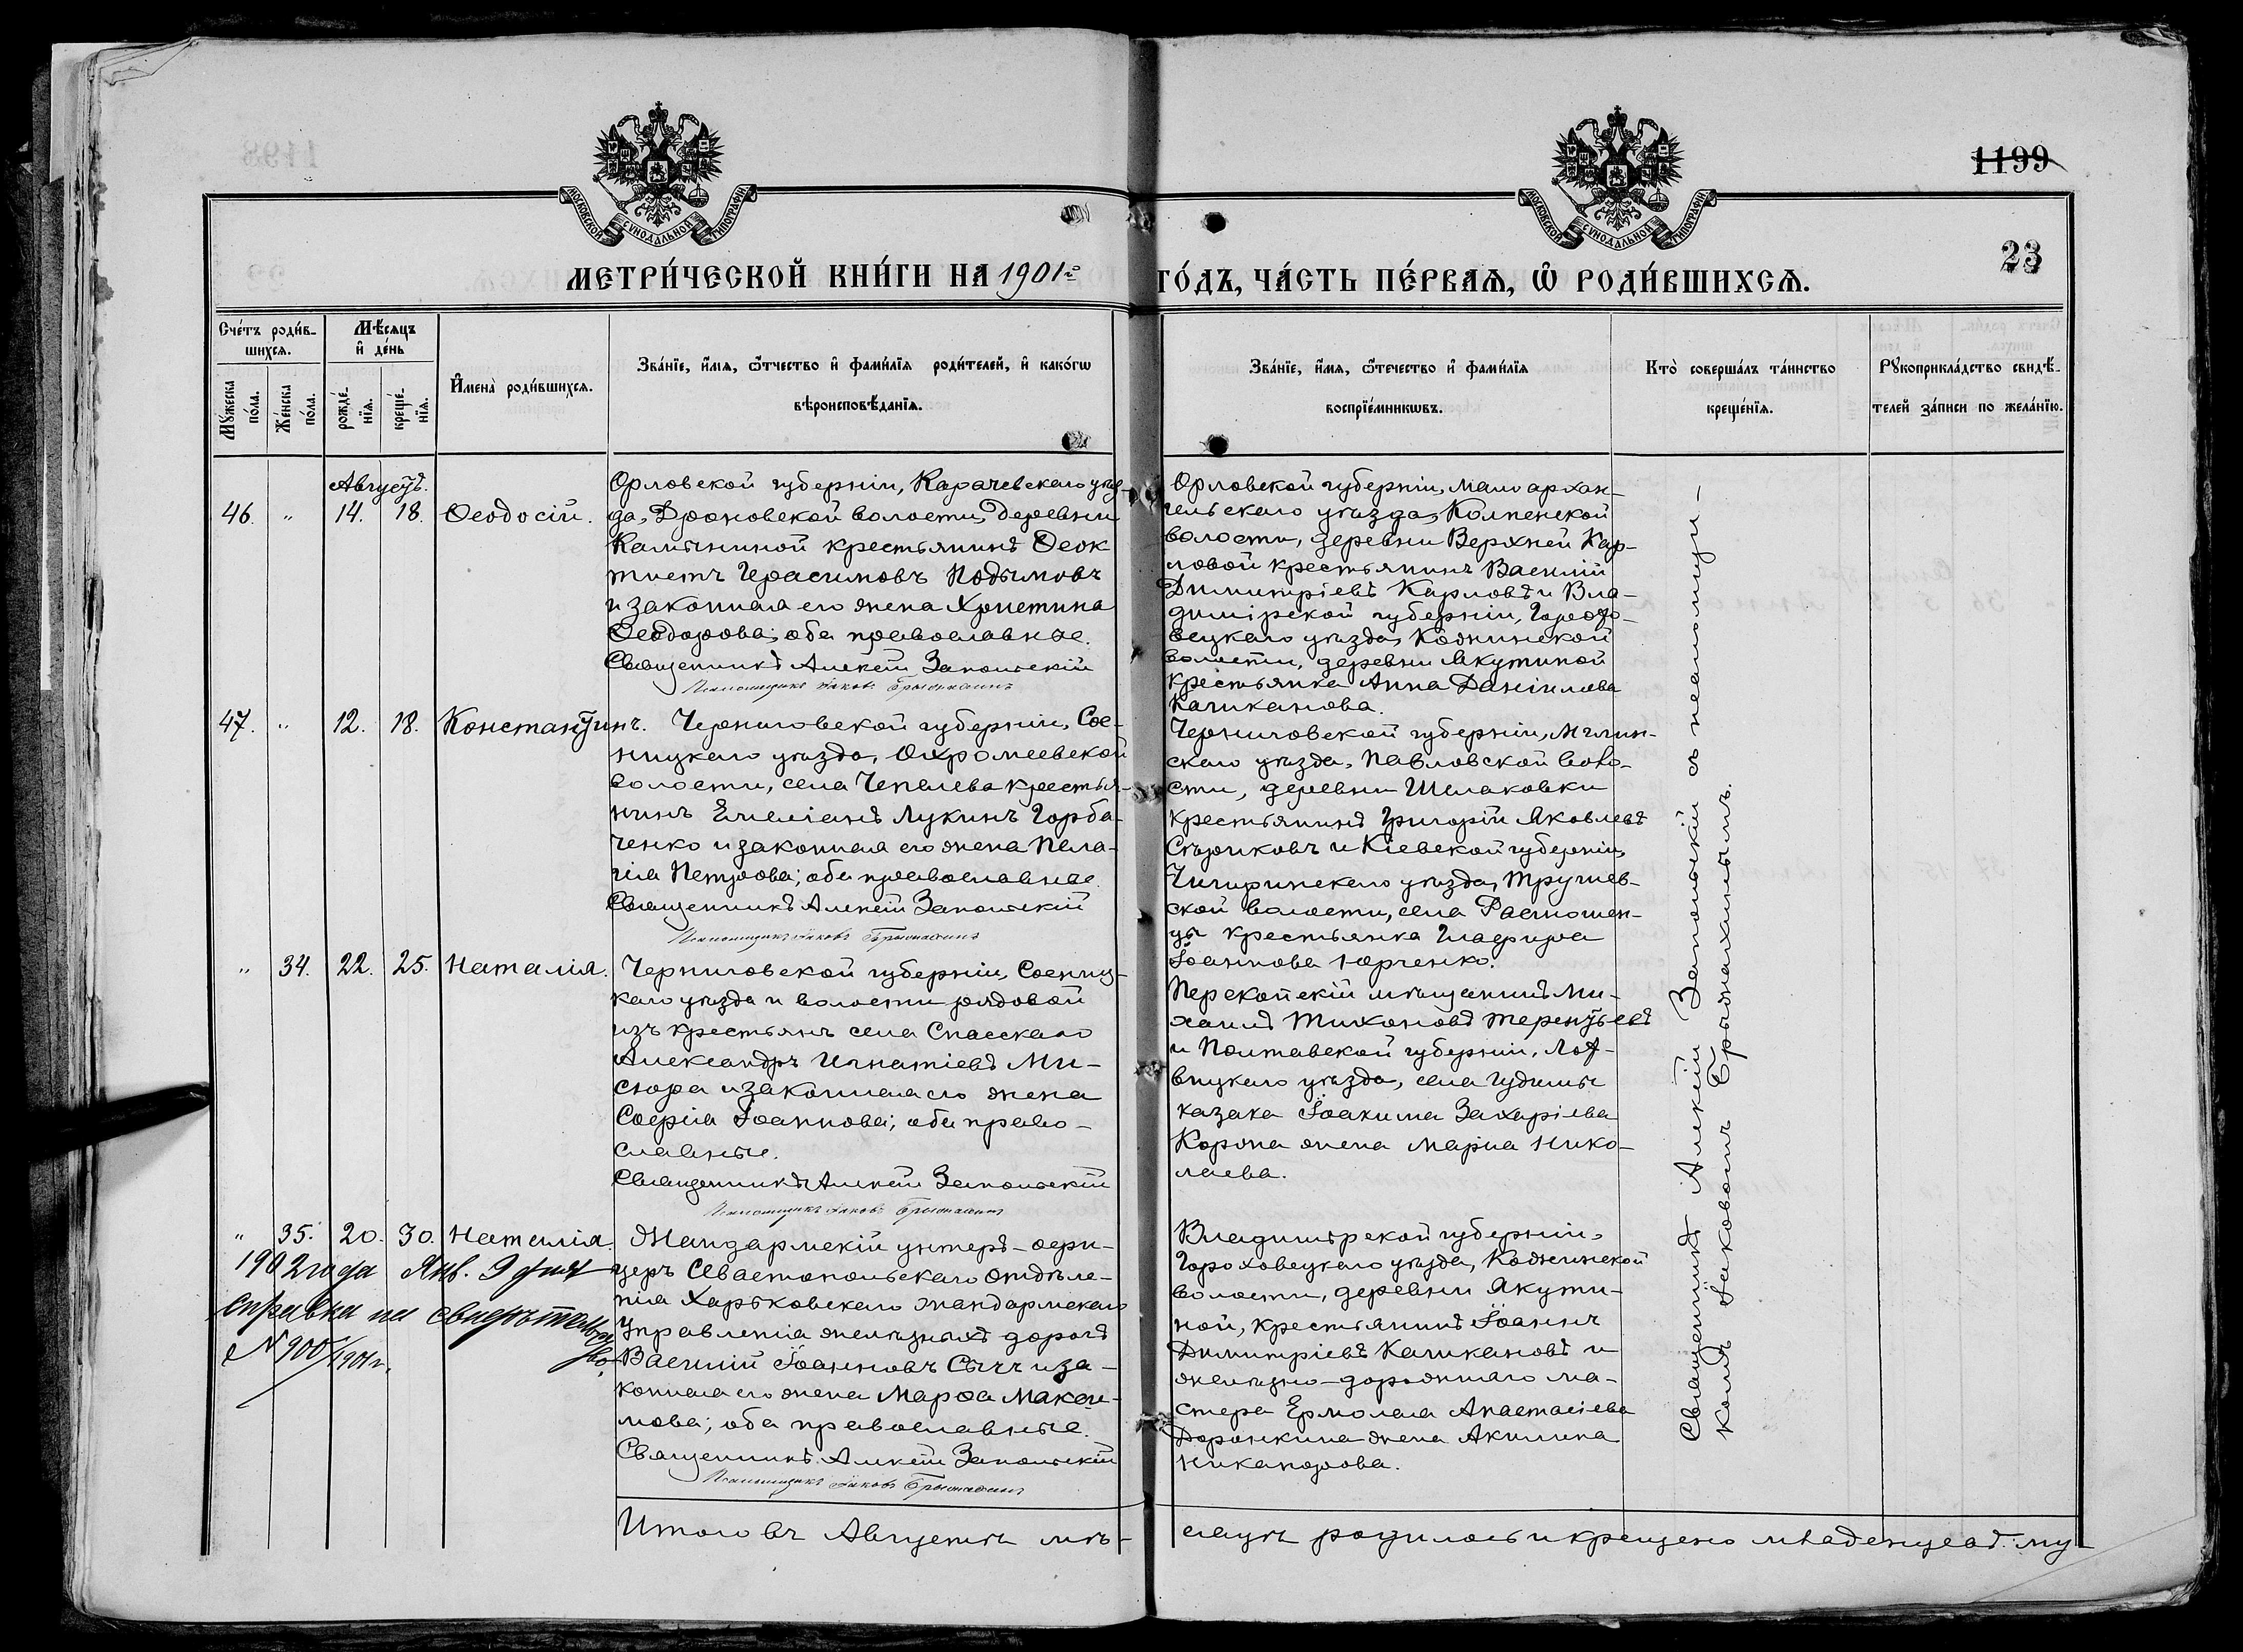 1199
МОСКОВСКОЙ СѴНОДАЛЬНОЙ ТИПОГРАФІИ
МОСКОВСКОЙ СѴНОДАЛЬНОЙ ТИПОГРАФІИ
23
МЕТРИ́ЧЕСКОЙ КНИ́ГИ НА 1901й ГО́ДЪ, ЧА́СТЬ ПЕ́РВАѦ, Ѡ҆ РОДИ́ВШИХСѦ.
Сче́тъ роди́в-
шихсѧ.
Мꙋ́жеска по́ла.
Же́нска по́ла.
Мѣ́сѧцъ
и҆ де́нь
рожде́-
нїѧ.
креще́-
нїѧ.
И҆мена̀ роди́вшихсѧ.
Зва́нїе, и҆́мѧ, ѻ҆́тчество и҆ фами́лїѧ роди́телей, и҆ како́гѡ
вѣроисповѣ́данїѧ.
Зва́нїе, и҆́мѧ, ѻ҆те́чество и҆ фами́лїѧ
воспрїе́мникѡвъ.
Кто̀ соверша́лъ та́инство
креще́нїѧ.
Рꙋкоприкла́дство свидѣ́-
телей за́писи по жела́нїю.
Августъ.
46. " 14. 18. Ѳеодосій.
Орловской губерніи, Карачевскаго уѣз-
да, Дроновской волости, деревни
Камыниной крестьянинъ Ѳеок
тистъ Герасимовъ Подымовъ
и законная его жена Христина
Ѳеодорова; оба православные.
Священникъ Алексій Запольскій
Псаломщикъ Іаковъ Брыжахинъ
Орловской губерніи, Малоархан-
гельскаго уѣзда, Колпенской
волости, деревни Верхней Кар-
ловой крестьянинъ Василій
Димитріевъ Карловъ и Вла-
димірской губерніи, Горохо-
вецкаго уѣзда, Кожинской
волости, деревни Якутиной
крестьянка Анна Даніилова
Каликанова.
47. " 12. 18. Константинъ.
Черниговской губерніи, Сос-
ницкаго уѣзда, Охромеевской
волости, села Чепелева крестья-
нинъ Емеліанъ Лукинъ Горба-
ченко и законная его жена Пела-
гія Петрова; оба православные.
Священникъ Алексій Запольскій
Псаломщикъ Іаковъ Брыжахинъ
Черниговской губерніи, Мглин-
скаго уѣзда, Павловской воло-
сти, деревни Шелаковки
крестьянинъ Григорій Яковлевъ
Стариковъ и Кіевской губерніи,
Чигиринскаго уѣзда, Трушев-
ской волости, села Расположен-
цы крестьянка Глафира
Іоаннова Юрченко.
" 34. 22. 25. Наталія.
Черниговской губерніи, Сосниц-
каго уѣзда и волости рядовой
изъ крестьянъ села Спасскаго
Александръ Игнатіевъ Ми-
сюра и законная его жена
Софія Іоаннова; оба право-
славные.
Священникъ Алексій Запольскій
Псаломщикъ Іаковъ Брыжахинъ
Перекопскій мѣщанинъ Ми-
хаилъ Тихоновъ Терентьевъ
и Полтавской губерніи, Лох-
вицкаго уѣзда, села Гудимы
казака Іоакима Захаріева
Корона жена Марія Нико-
лаева.
" 35. 20. 30. Наталія.
1902 года Янв. 9 дня
справка на свидѣтельство
№ 900/1901 г.
Жандармскій унтеръ-офи-
церъ Севастопольскаго отдѣле-
нія Харьковскаго жандармскаго
Управленія желѣзныхъ дорогъ
Василій Іоанновъ Сычъ и за-
конная его жена Марѳа Макси-
мова; оба православные.
Священникъ Алексій Запольскій
Псаломщикъ Іаковъ Брыжахинъ
Владимірской губерніи,
Гороховецкаго уѣзда, Кожинской
волости, деревни Якути-
ной, крестьянинъ Іоаннъ
Димитріевъ Каликановъ и
желѣзно-дорожнаго ма-
стера Ермолая Анастасіева
Доронкина жена Акилина
Никанорова.
Священникъ Алексій Запольскій съ псаломщи-
комъ Іаковомъ Брыжахинымъ.
Итого въ Августѣ мѣ-
сяцѣ родилось и крещено младенцевъ: му